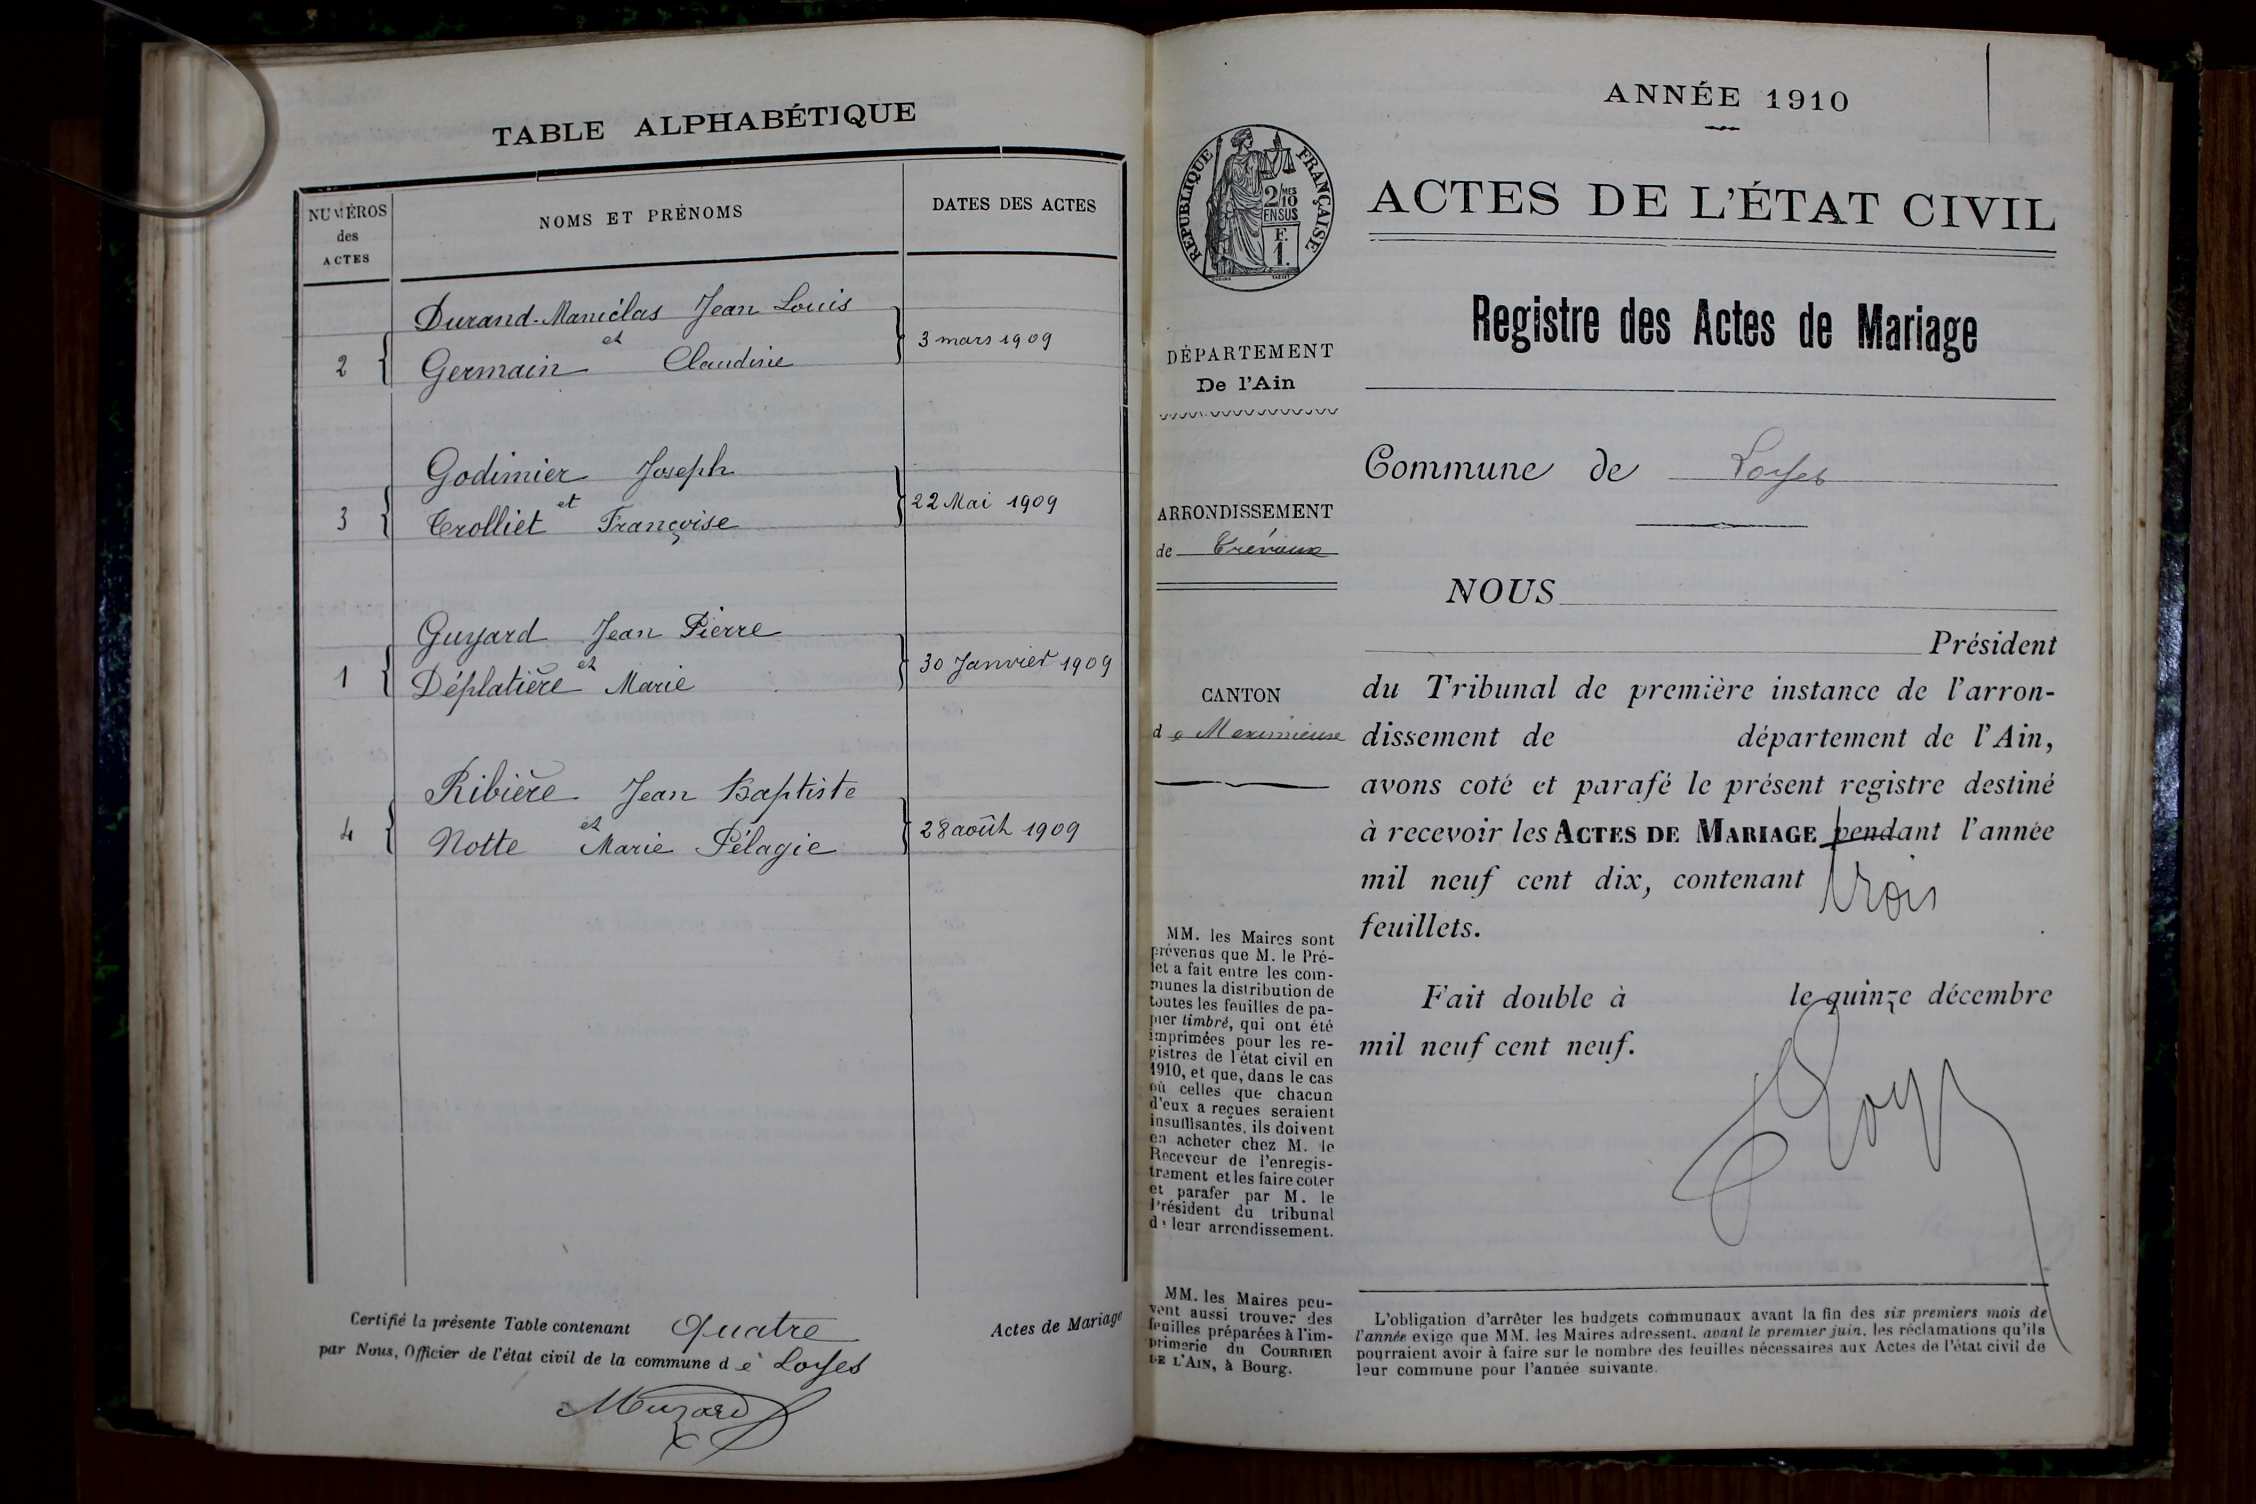 TABLE ALPHABÉTIQUE
NUMÉROS
des
ACTES
NOMS ET PRÉNOMS
DATES DES ACTES
Durand-Maniclas Jean Louis
et
2 { Germain Claudine } 3 mars 1909
Godimier Joseph
et
3 { Trolliet Françoise } 22 Mai 1909
Guyard Jean Pierre
et
1 { Déplatière Marie } 30 Janvier 1909
Ribière Jean Baptiste
et
4 { Notte Marie Pélagie } 28 août 1909
Certifié la présente Table contenant Quatre Actes de Mariage
par Nous, Officier de l'état civil de la commune de Loyes
Muzard
ANNÉE 1910
RÉPUBLIQUE FRANÇAISE
2/10 MES
EN SUS
F.
1.
ACTES DE L'ÉTAT CIVIL
Registre des Actes de Mariage
DÉPARTEMENT
De l'Ain
ARRONDISSEMENT
de Trévoux
CANTON
de Meximieux
MM. les Maires sont
prévenus que M. le Pré-
fet a fait entre les com-
munes la distribution de
toutes les feuilles de pa-
pier timbré, qui ont été
imprimées pour les re-
gistres de l'état civil en
1910, et que, dans le cas
où celles que chacun
d'eux a reçues seraient
insuffisantes, ils doivent
en acheter chez M. le
Receveur de l'enregis-
trement et les faire coter
et parafer par M. le
Président du tribunal
de leur arrondissement.
MM. les Maires peu-
vent aussi trouver des
feuilles préparées à l'im-
primerie du COURRIER
DE L'AIN, à Bourg.
Commune de Loyes
NOUS
Président
du Tribunal de première instance de l'arron-
dissement de département de l'Ain,
avons coté et parafé le présent registre destiné
à recevoir les ACTES DE MARIAGE pendant l'année
mil neuf cent dix, contenant trois
feuillets.
Fait double à le quinze décembre
mil neuf cent neuf.
L'obligation d'arrêter les budgets communaux avant la fin des six premiers mois de
l'année exige que MM. les Maires adressent, avant le premier juin, les réclamations qu'ils
pourraient avoir à faire sur le nombre des feuilles nécessaires aux Actes de l'état civil de
leur commune pour l'année suivante.